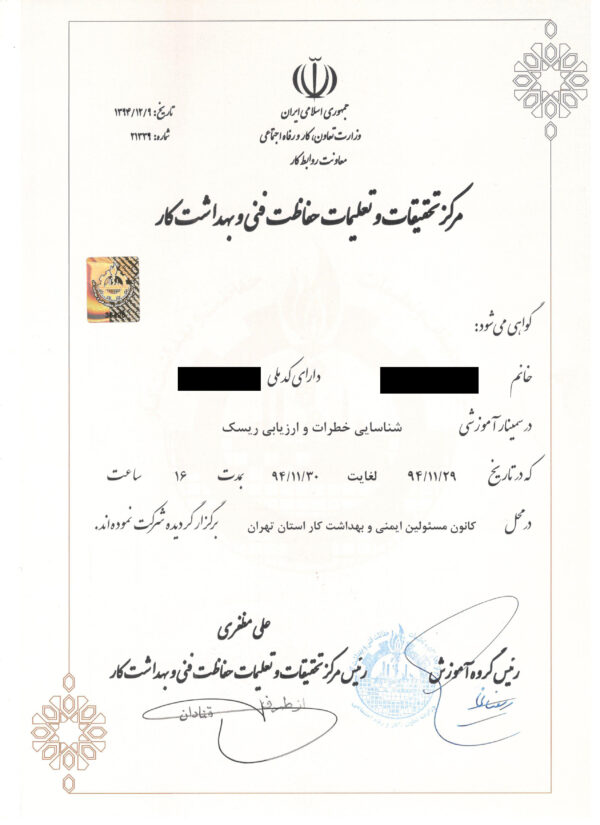 جمهوری اسلامی ایران
وزارت تعاون، کار و رفاه اجتماعی
معاونت روابط کار
تاریخ: ۱۳۹۴/۱۲/۹
شماره: ۲۱۳۳۹
مرکز تحقیقات و تعلیمات حفاظت فنی و بهداشت کار
گواهی می شود:
خانم دارای کد ملی
در سمینار آموزشی شناسایی خطرات و ارزیابی ریسک
که در تاریخ ۹۴/۱۱/۲۹ لغایت ۹۴/۱۱/۳۰ بمدت ۱۶ ساعت
در محل کانون مسئولین ایمنی و بهداشت کار استان تهران برگزار گردیده شرکت نموده اند.
علی مظفری
رئیس گروه آموزش
رئیس مرکز تحقیقات و تعلیمات حفاظت فنی و بهداشت کار
از طرف